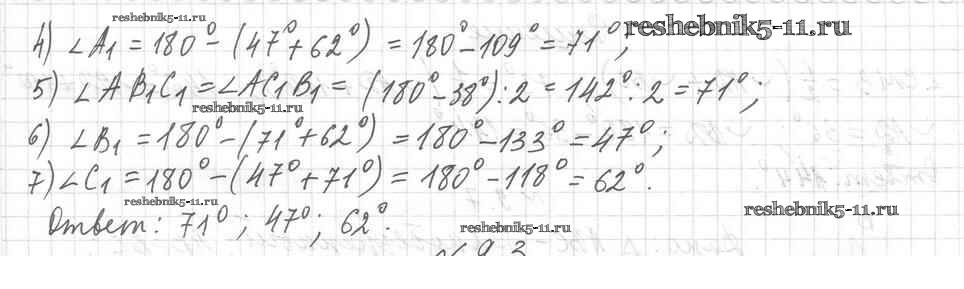 reshebnik5-11.ru
4) ∠A₁ = 180° - (47° + 62°) = 180° - 109° = 71°;
reshebnik5-11.ru
5) ∠AB₁C₁ = ∠AC₁B₁ = (180° - 38°) : 2 = 142° : 2 = 71°;
reshebnik5-11.ru
6) ∠B₁ = 180° - (71° + 62°) = 180° - 133° = 47°;
7) ∠C₁ = 180° - (47° + 71°) = 180° - 118° = 62°.
reshebnik5-11.ru
Ответ: 71°; 47°; 62°.
reshebnik5-11.ru
reshebnik5-11.ru